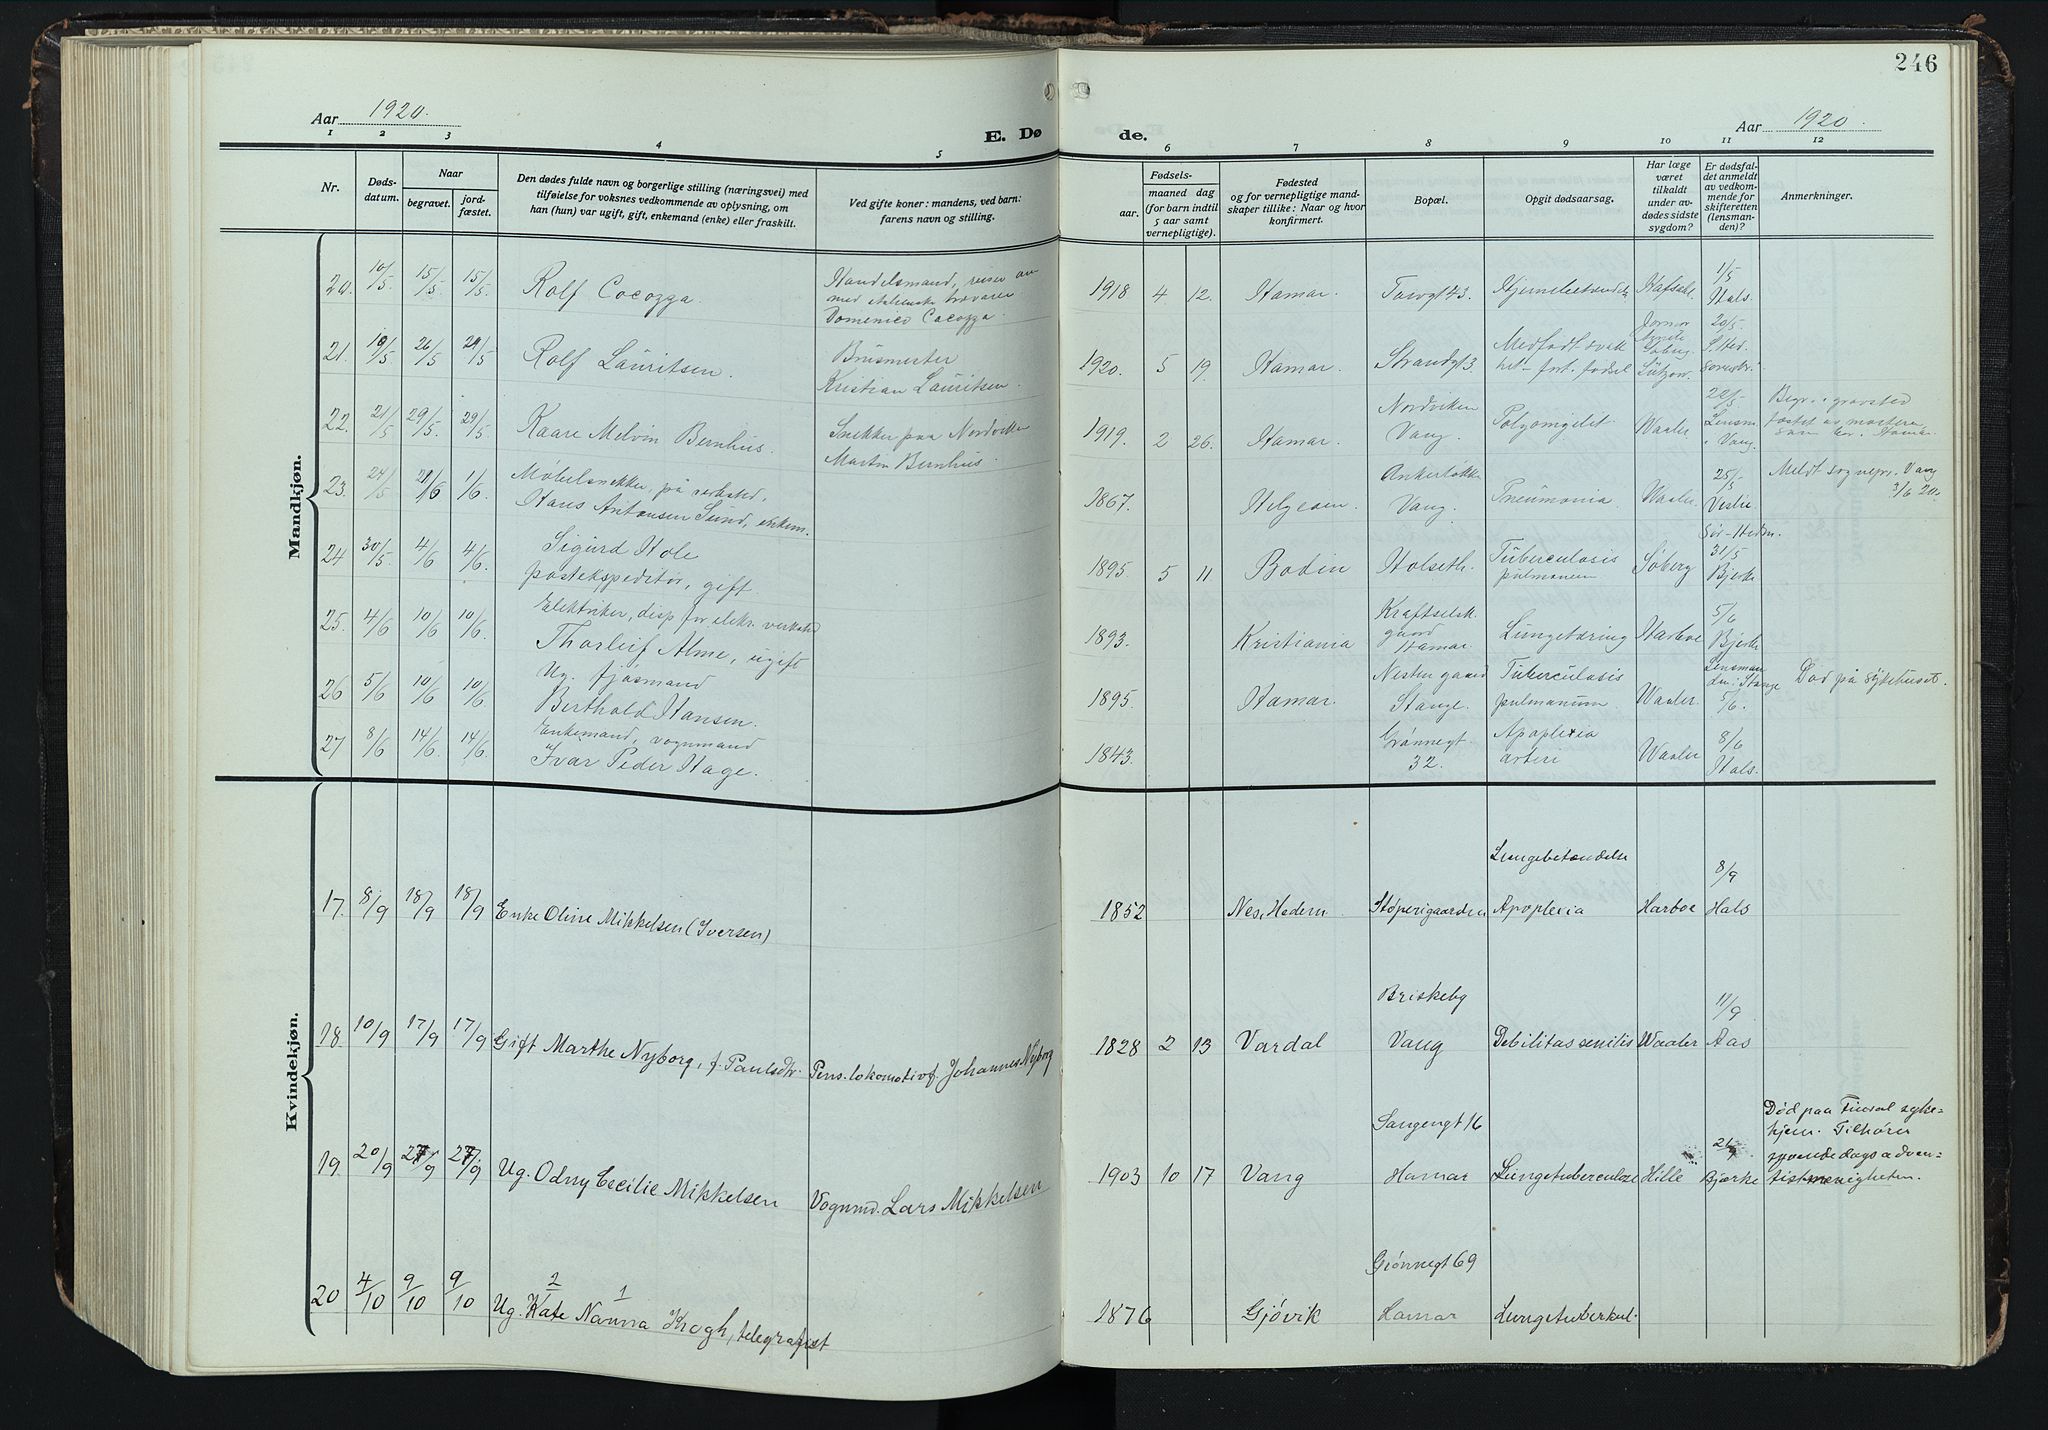 246
Aar 1920.
E. Dø de.
Aar 1920.
1 2 3 4 5 6 7 8 9 10 11 12
Nr.
Døds-
datum.
Naar
begravet.
jord-
fæstet.
Den dødes fulde navn og borgerlige stilling (næringsvei) med
tilføielse for voksnes vedkommende av oplysning, om
han (hun) var ugift, gift, enkemand (enke) eller fraskilt.
Ved gifte koner: mandens, ved barn:
farens navn og stilling.
Fødsels-
aar.
maaned dag
(for barn indtil
5 aar samt
vernepligtige).
Fødested
og for vernepligtige mand-
skaper tillike: Naar og hvor
konfirmert.
Bopæl.
Opgit dødsaarsag.
Har læge
været
tilkaldt
under av-
dødes sidste
sygdom?
Er dødsfal-
det anmeldt
av vedkom-
mende for
skifteretten
(lensman-
den)?
Anmerkninger.
Mandkjøn.
20. 10/5 15/5 15/5. Rolf Cocozza.
Handelsmand, reiser
med italienske
Domenico Cocozza.
1918 4 12. Hamar. Torvgt 43. 1/5 Hals.
21. 19/5 26/5 29/5 Rolf Lauritsen.
Brusmester
Kristian Lauritsen.
1920. 5 19. Hamar. Strandgt 3 Medfødt svak
het - fødsel Søberg Lützow. 20/5.
22. 21/5 29/5. 29/5 Kaare Melvin Bernhus.
Snekker paa Nordviken
Martin Bernhus.
1919. 2 26. Hamar. Nordviken
Vang. Waaler 22/5 Lensm.
i Vang. Begr. i gravsted
23. 24/5 1/6 Møbelsnekker på verksted,
Hans Antonsen Lund, enkem.
1867. Helgøen. Ankerløkke
Vang. Pneumonia Waaler 25/5 Meldt sognepr. Vang
3/6 20.
24 30/5 4/6 4/6. Sigurd Hole
postekspeditør, gift
1895. 5 11 Bodin Holseth. Tuberculosis
pulmonum Søberg Sør-Hedm.
31/5
Bjerke
25. 4/6 10/6 10/6. Elektriker, disp for elekr. verksted
Thorleif Alme, ugift
1893. Kristiania Kraftselsk.
gaard
Hamar. Lungetæring Harboe 5/6
Bjerke
26 5/6 10/6 10/6 Ug. fjøsmand
Berthold Hansen.
1895. Hamar. Nestengaard
Stange. Tuberculosis
pulmonum Waaler. Lensman
den i Stange
5/6. Død på sykehuset.
27 8/6 14/6 14/6 Enkemand, vognmand
Ivar Peder Hage.
1843. Grønnegt.
32. Apoplexia
arteri Waaler 8/6
Hals.
Kvindekjøn.
17. 8/9 18/9 18/9 Enke Oline Mikkelsen (Iversen)
1852 Nes, Hedem. Støperigaarden Lungebetændelse
Apoplexia Harboe 8/9
Hals
18. 10/9 17/9 17/9 Gift Marthe Nyborg, f. Paulsdtr. Pens. lokomotivf. Johannes Nyborg
1828 2 13 Vardal Briskeby
Vang Debilitas senilis Waaler 11/9
Aas
19. 20/9 27/9 27/9 Ug. Odny Cecilie Mikkelsen Vognmd. Lars Mikkelsen
1903 10 17 Vang Sangengt 16
Hamar Lungetuberculose Hille Bjerke Død paa Furesal syke-
hjem. Tilhører
syvendedags adven-
tistmenigheten.
20 4/10 9/10 9/10 2 1
Ug. Kate Nanna Krogh, telegrafist
1876 Gjøvik Grønnegt 69
Hamar Lungetuberkul.